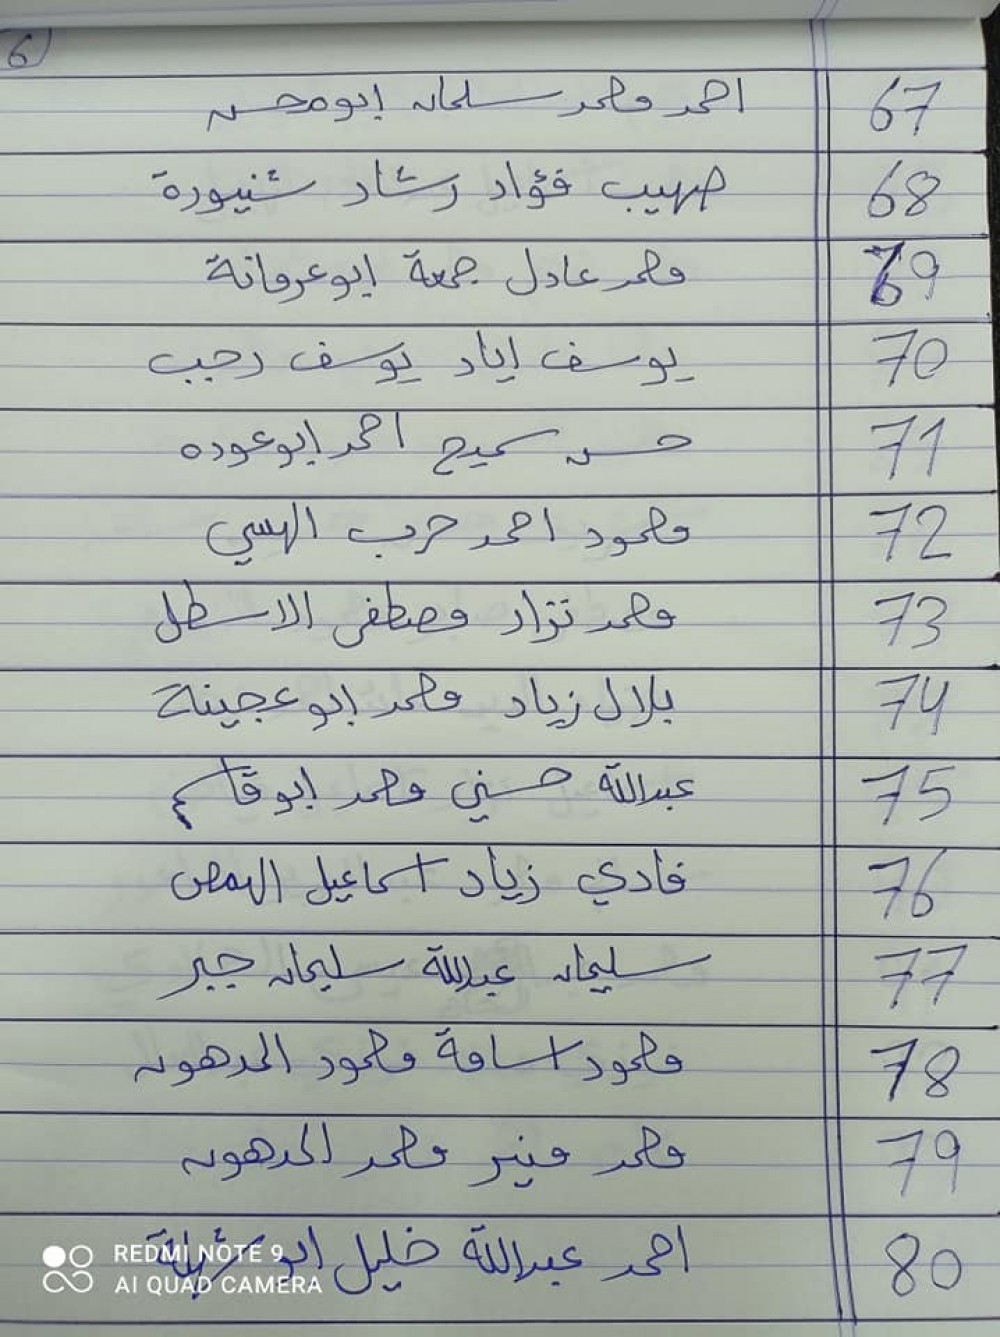 6
67 احمد محمد سلمان ابو محسن
68 صهيب فؤاد رشاد شنيورة
69 محمد عادل جمعة ابو عرمانة
70 يوسف اياد يوسف رجب
71 حسن سميح احمد ابو عوده
72 محمود احمد حرب الهسي
73 محمد نزار مصطفى الاسطل
74 بلال زياد محمد ابو عجينة
75 عبدالله حسني محمد ابو قاسم
76 فادي زياد اسماعيل الهمص
77 سليمان عبدالله سليمان جبر
78 محمود اسامة محمود المدهون
79 محمد منير محمد المدهون
80 احمد عبدالله خليل ابو
REDMI NOTE 9
AI QUAD CAMERA